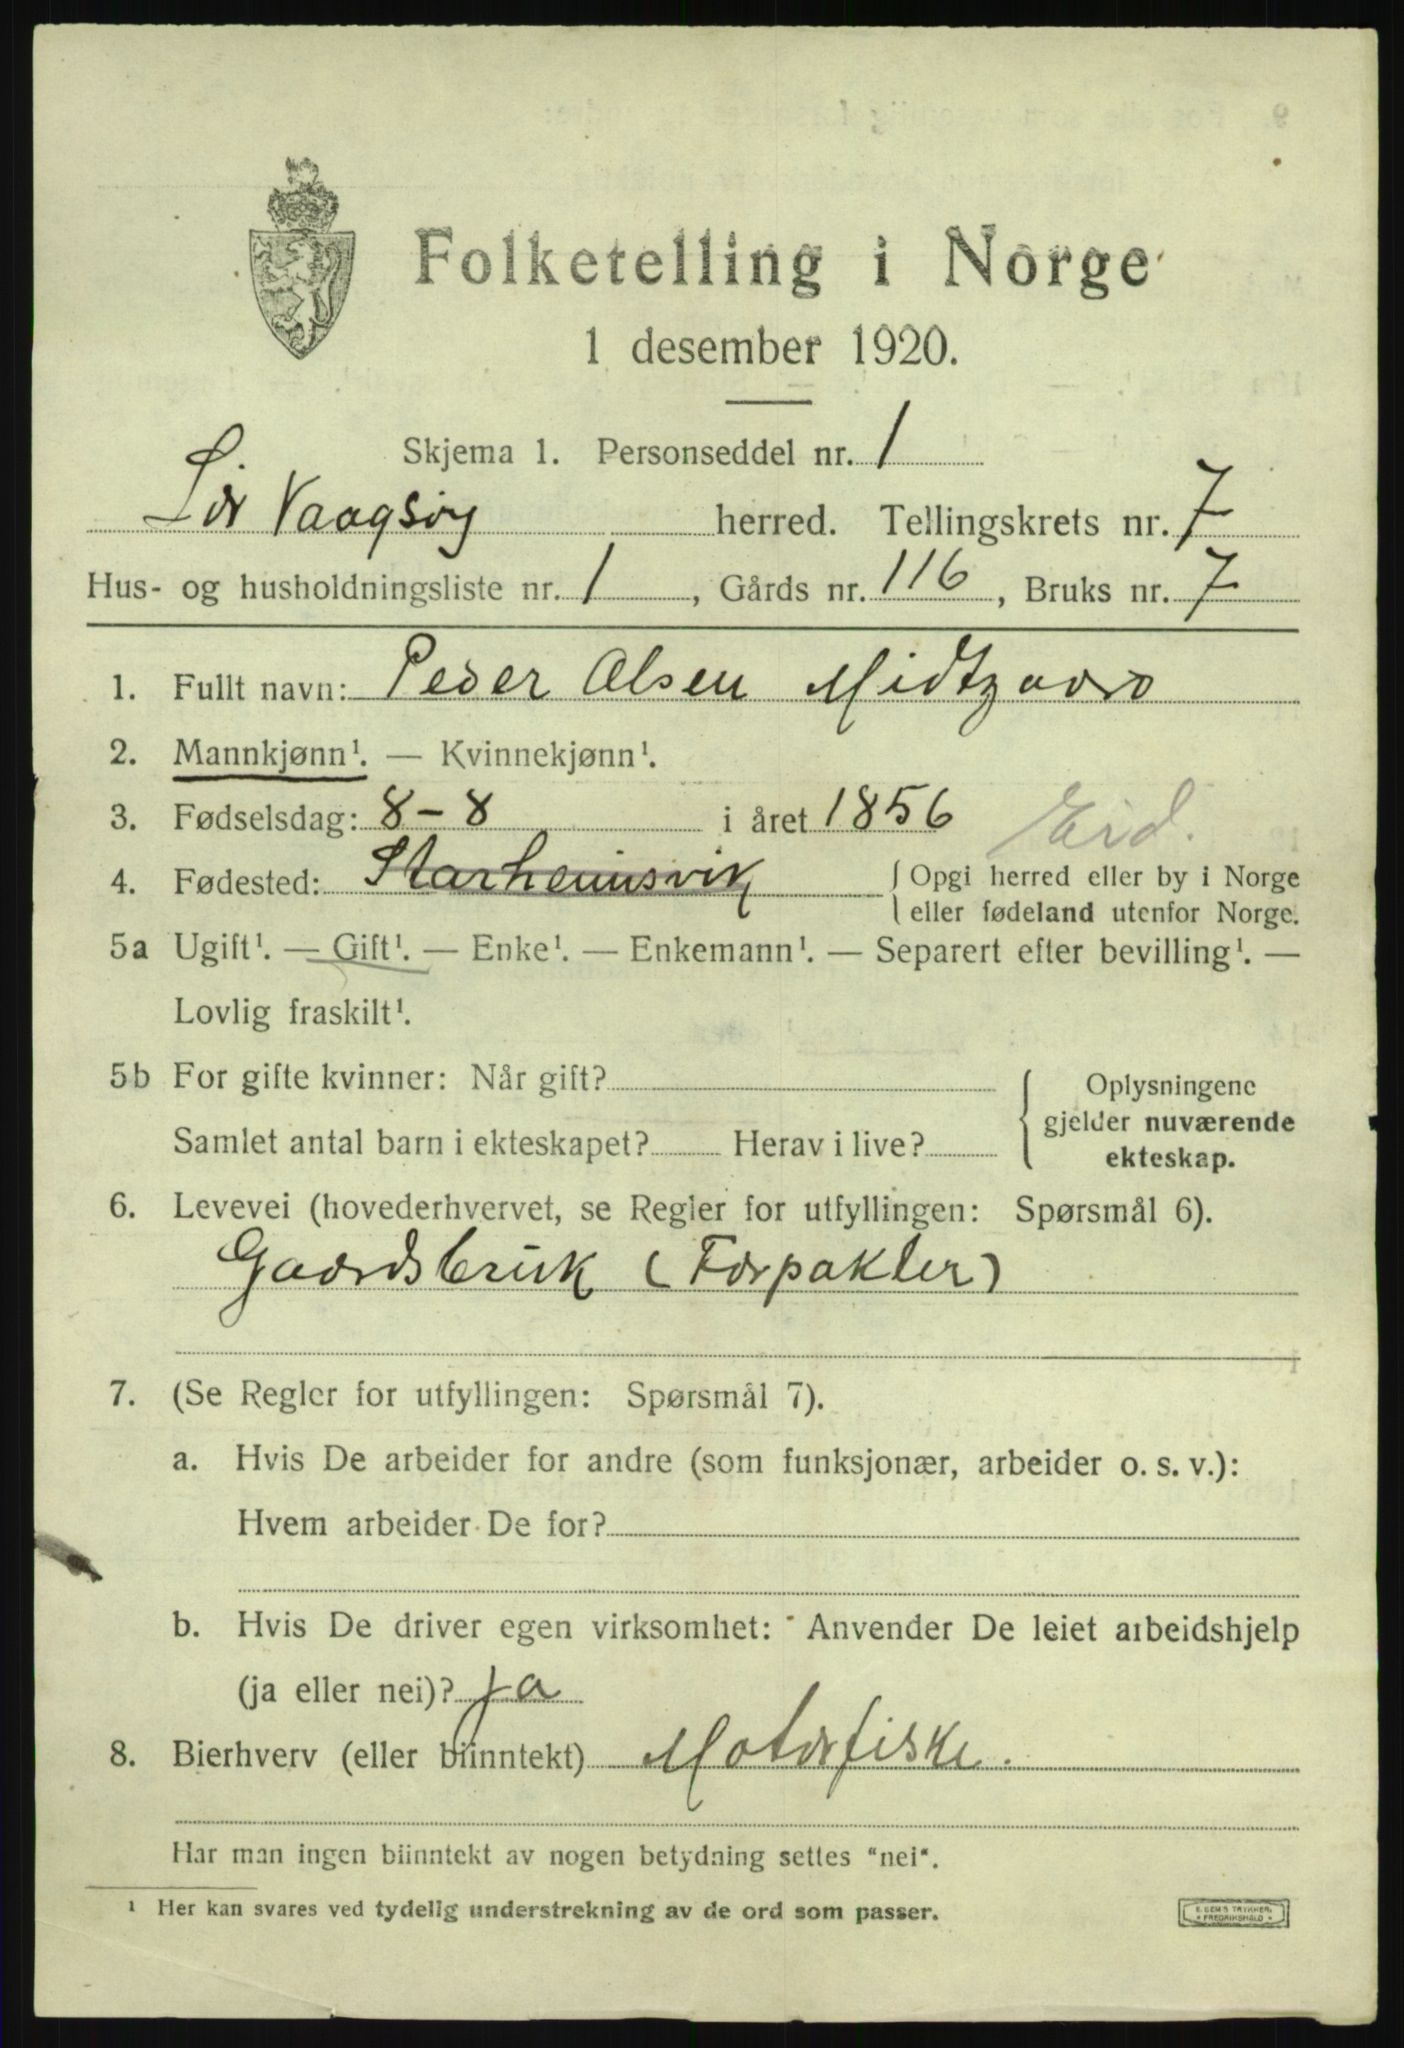 Folketelling i Norge
1 desember 1920.
Skjema 1. Personseddel nr. 1
Sør Vaagsøy herred. Tellingskrets nr. 7
Hus- og husholdningsliste nr. 1, Gårds nr. 116, Bruks nr. 7
1. Fullt navn: Peder Olsen Midtgaard
2. Mannkjønn¹. — Kvinnekjønn¹.
3. Fødselsdag: 8-8 i året 1856 Eid.
4. Fødested: Starheimsvik { Opgi herred eller by i Norge
eller fødeland utenfor Norge.
5a Ugift¹. — Gift¹. — Enke¹. — Enkemann¹. — Separert efter bevilling¹. —
Lovlig fraskilt¹.
5b For gifte kvinner: Når gift?
Samlet antal barn i ekteskapet? Herav i live?
{ Oplysningene
gjelder nuværende
ekteskap.
6. Levevei (hovederhvervet, se Regler for utfyllingen: Spørsmål 6).
Gaardsbruk (Forpakter)
7. (Se Regler for utfyllingen: Spørsmål 7).
a. Hvis De arbeider for andre (som funksjonær, arbeider o. s. v.):
Hvem arbeider De for?
b. Hvis De driver egen virksomhet: Anvender De leiet arbeidshjelp
(ja eller nei)? ja
8. Bierhverv (eller biinntekt) Motorfiske.
Har man ingen biinntekt av nogen betydning settes "nei".
¹ Her kan svares ved tydelig understrekning av de ord som passer.
FREDRIKSHALD